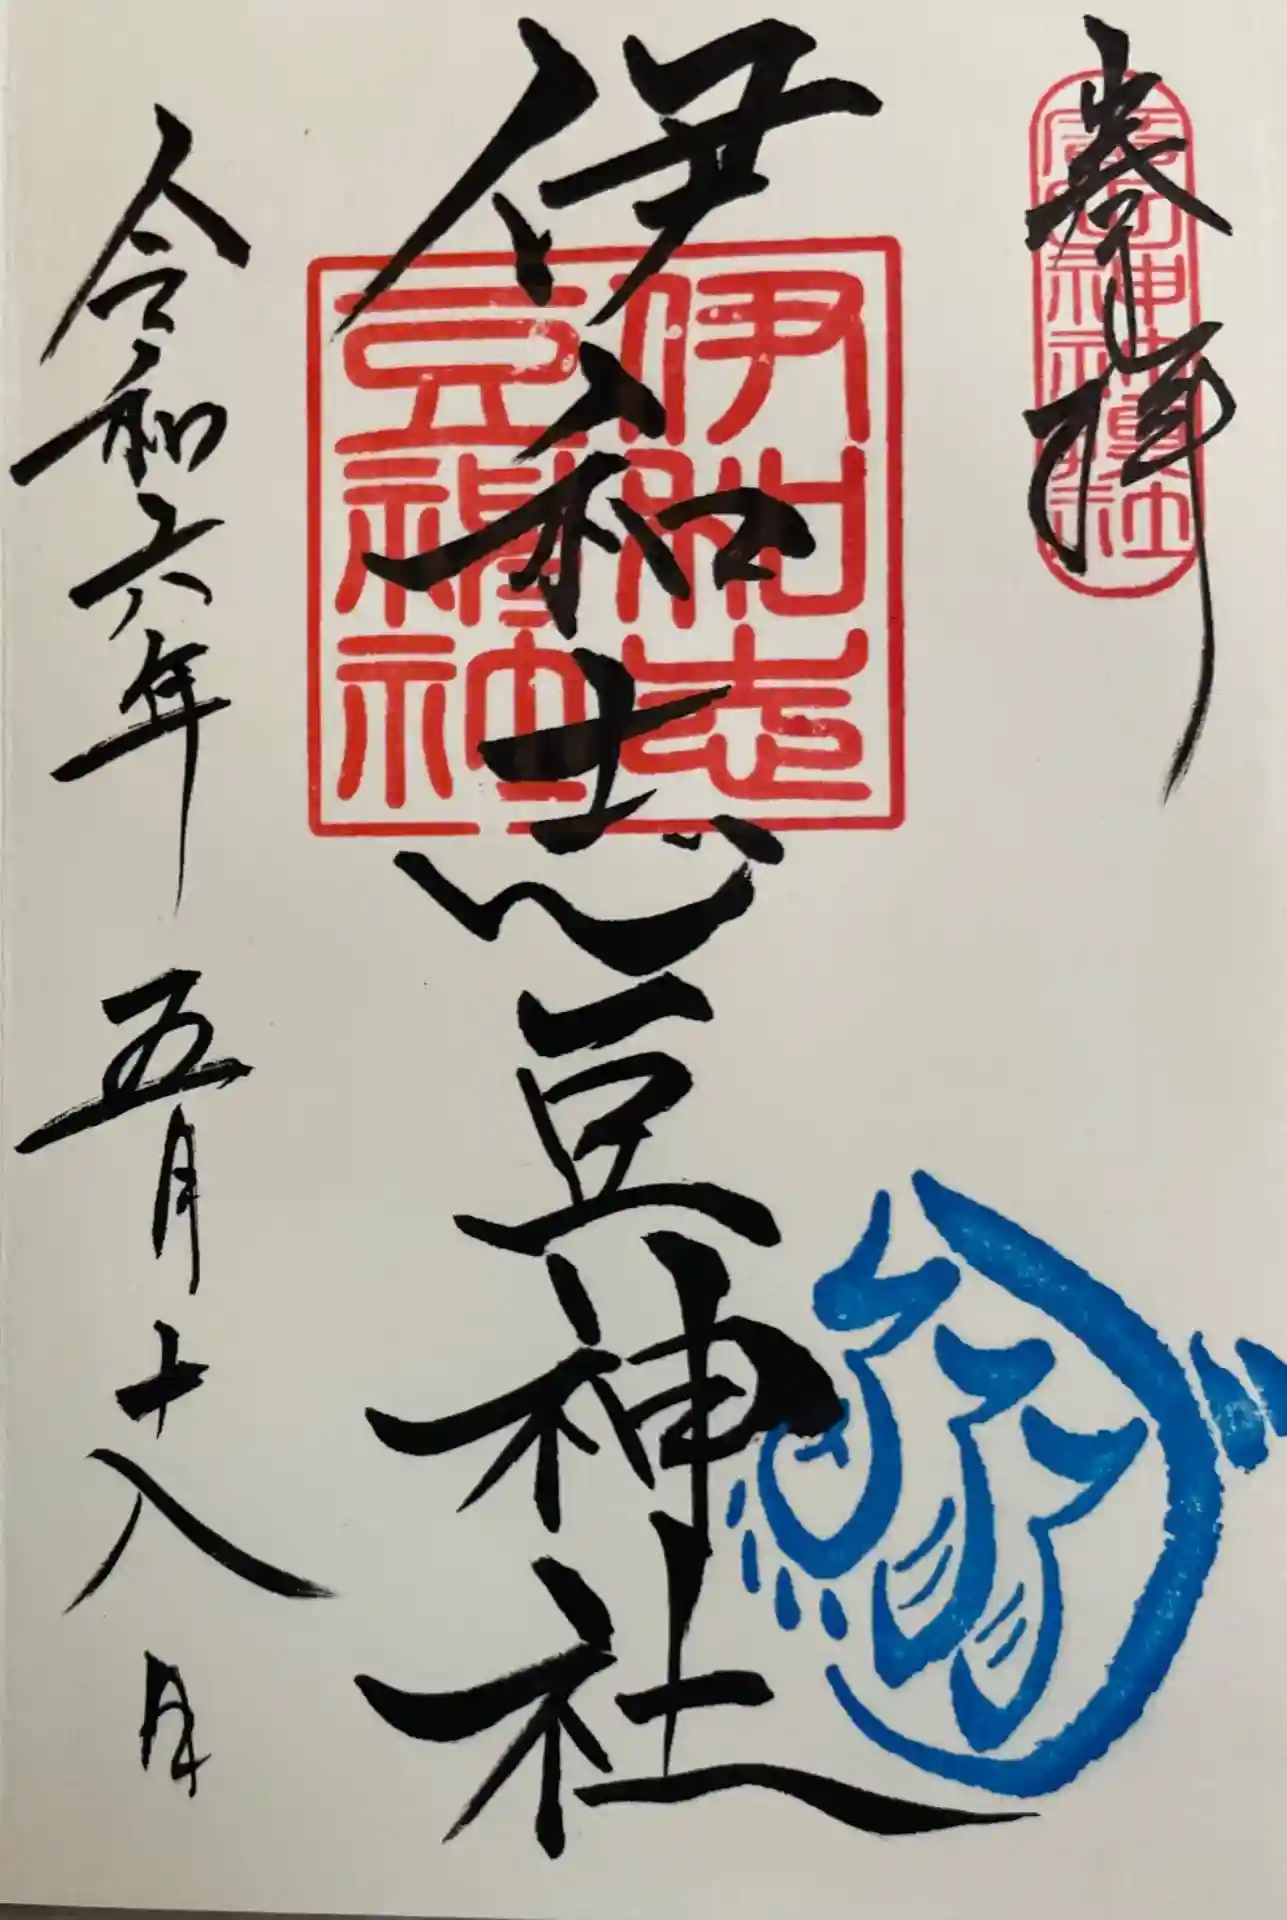 奉拝
廣田神社攝社
伊和志豆神社
伊和志
豆神社
令和六年 五月十八日